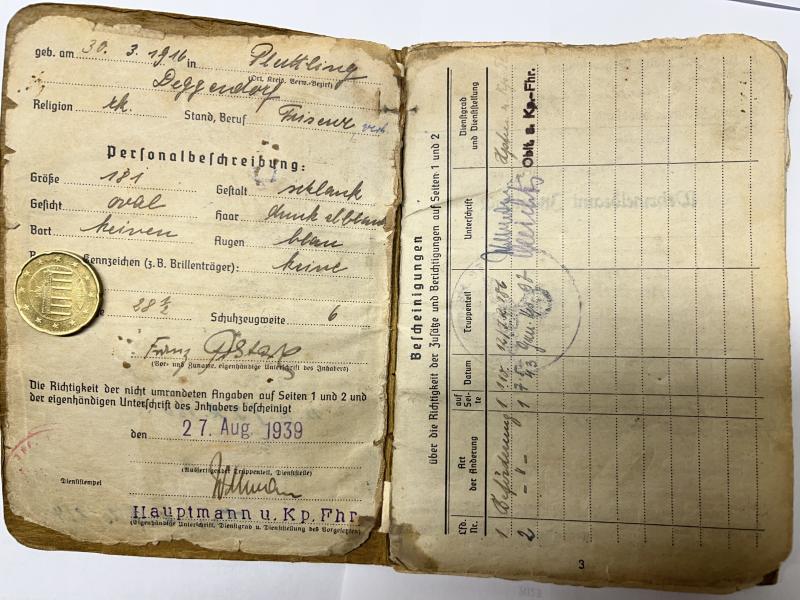 geb. am 30. 3. 1916 in Plattling
(Ort, Kreis, Verw.-Bezirk)
Deggendorf
Religion rk. Stand, Beruf Friseur verh.
Personalbeschreibung:
Größe 181 Gestalt schlank
Gesicht oval Haar dunkelblond
Bart keinen Augen blau
Kennzeichen (z. B. Brillenträger): keine
28 1/2 Schuhzeugweite 6
Franz
(Vor- und Zuname, eigenhändige Unterschrift des Inhabers)
Die Richtigkeit der nicht umrandeten Angaben auf Seiten 1 und 2 und
der eigenhändigen Unterschrift des Inhabers bescheinigt
den 27. Aug. 1939
(Ausfertigender Truppenteil, Dienststelle)
Dienststempel
Hauptmann u. Kp. Fhr.
(Eigenhändige Unterschrift, Dienstgrad u. Dienststellung des Vorgesetzten)
Bescheinigungen
über die Richtigkeit der Zusätze und Berichtigungen auf Seiten 1 und 2
Lfd. Nr. Art der Änderung auf Seite Datum Truppenteil Unterschrift Dienstgrad und Dienststellung
1 Beförderung 1
2 - " - 1 43 Oblt. u. Kp.-Fhr.
3